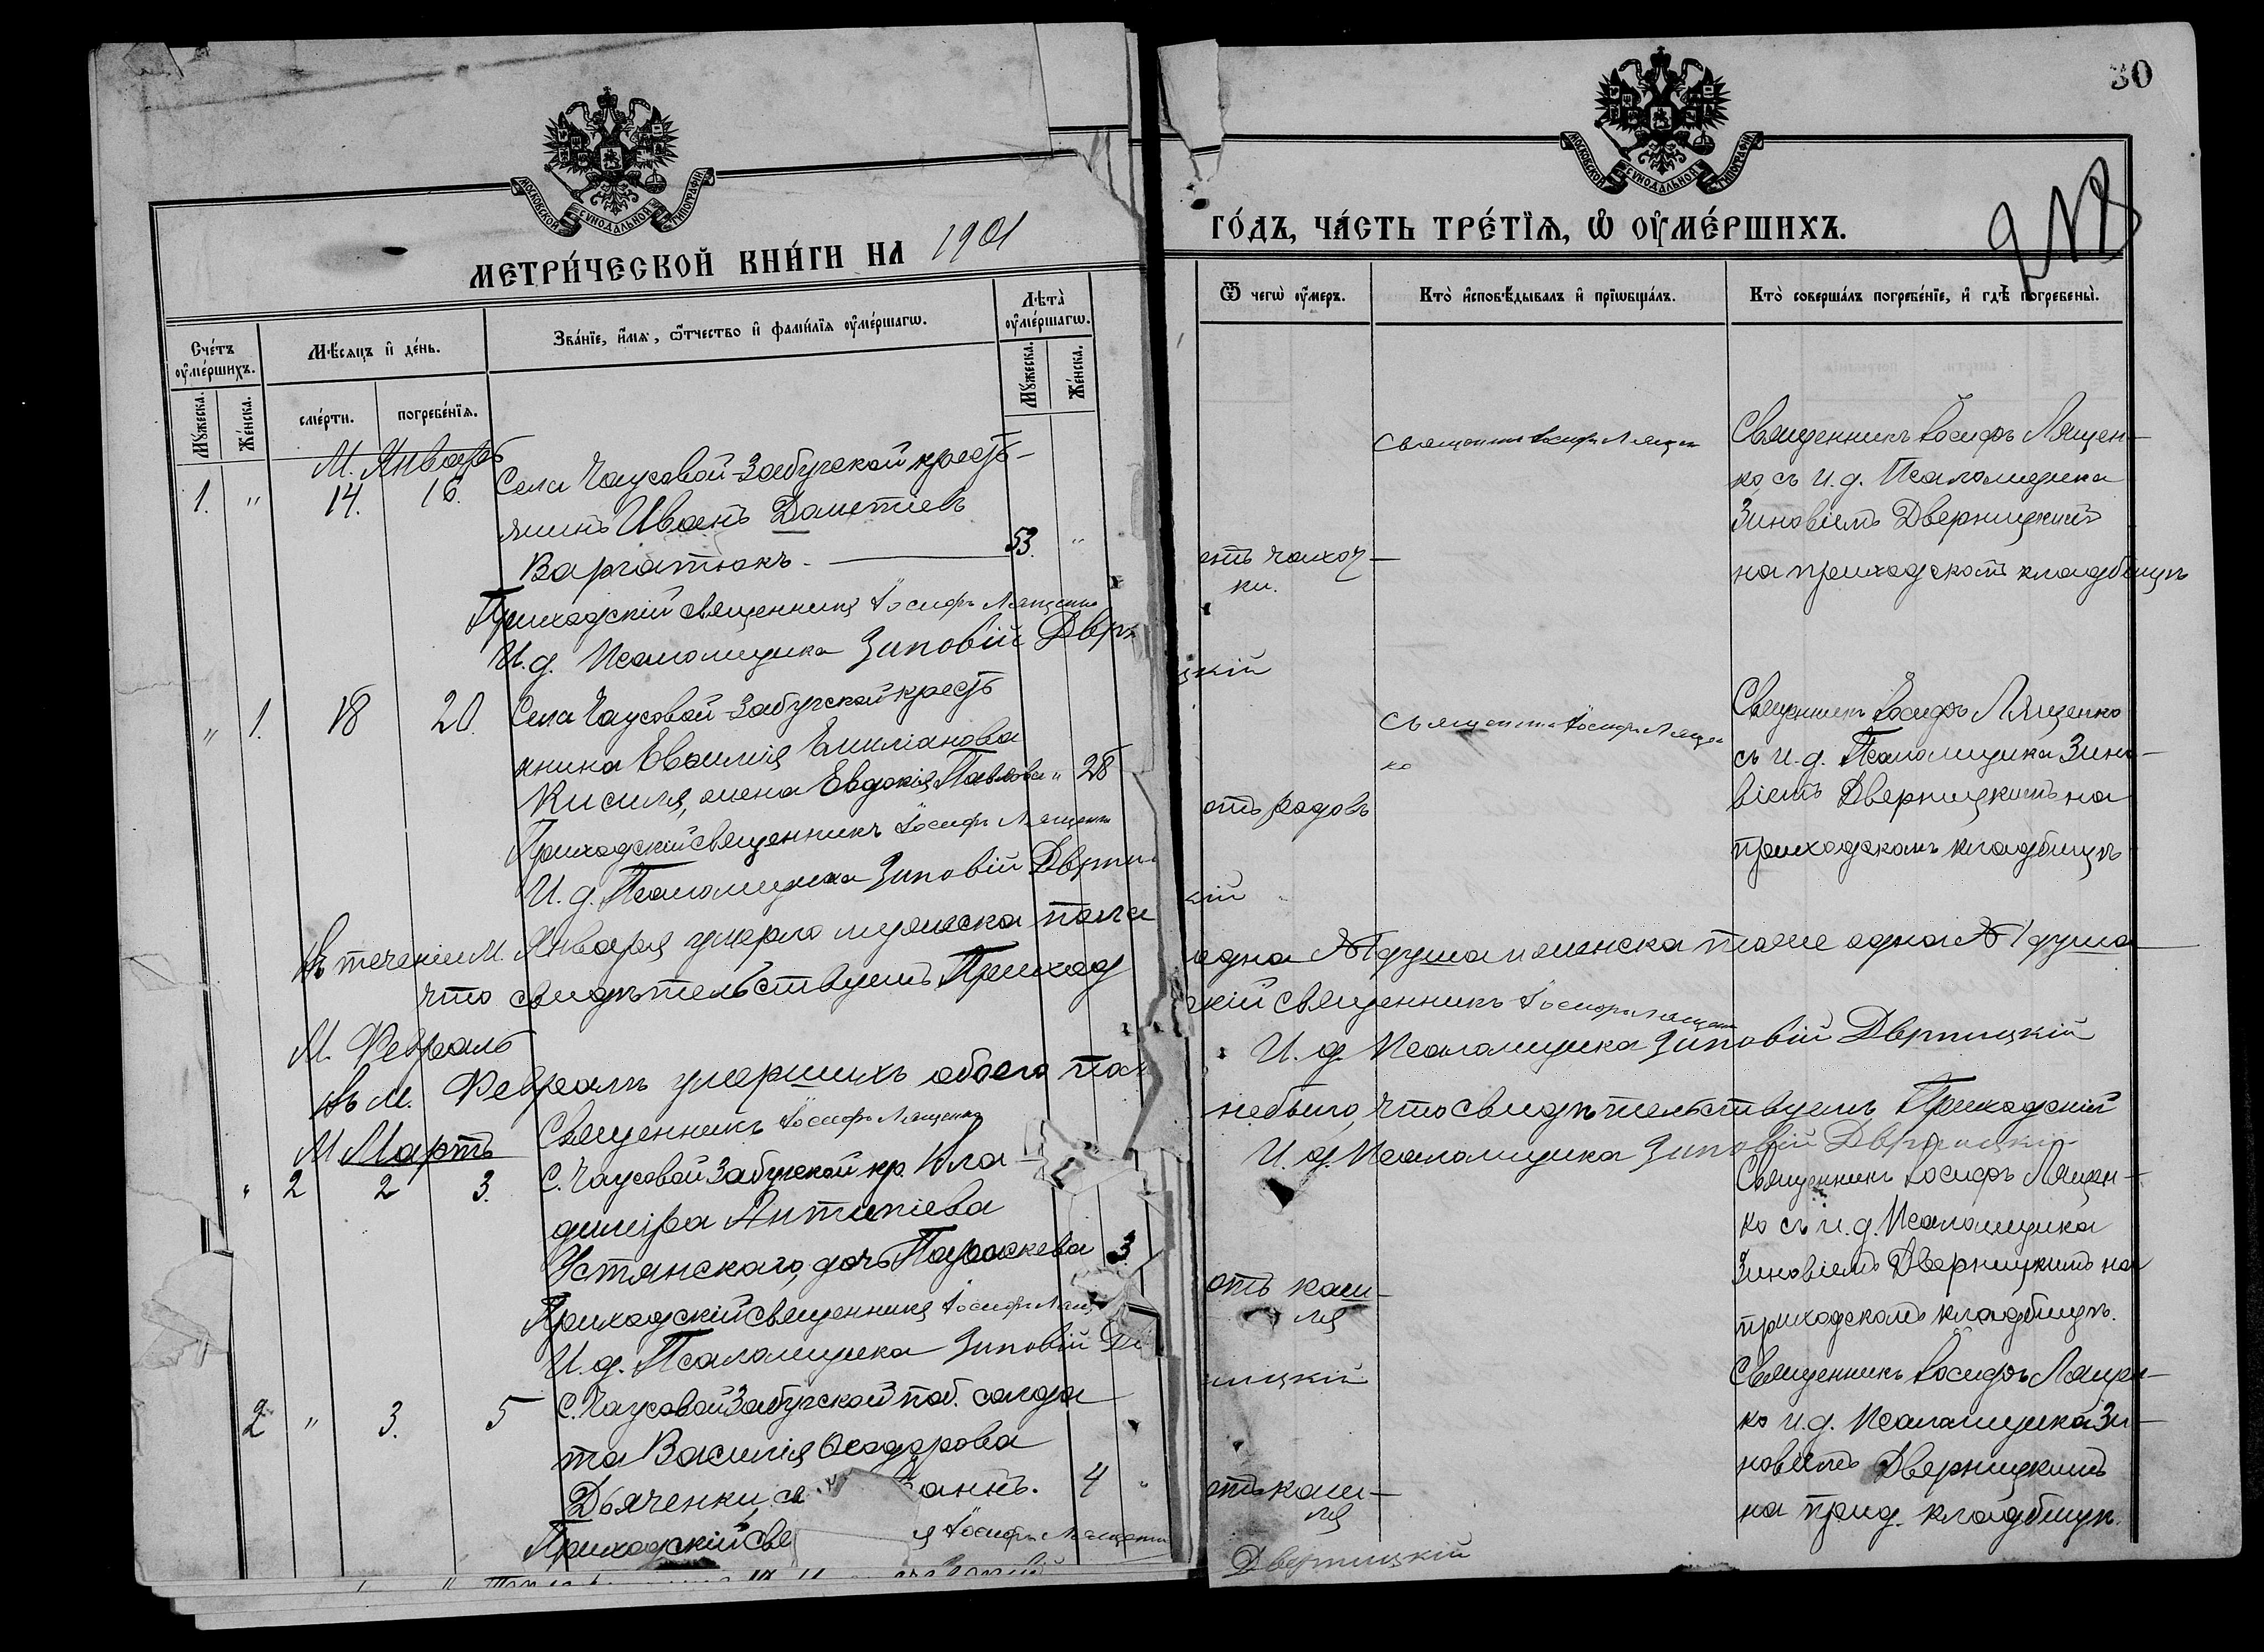 30
МОСКОВСКОЙ СѴНОДАЛЬНОЙ ТИПОГРАФІИ
МОСКОВСКОЙ СѴНОДАЛЬНОЙ ТИПОГРАФІИ
МЕТРИ́ЧЕСКОЙ КНИ́ГИ НА 1901
ГО́ДЪ, ЧА́СТЬ ТРЕ́ТЇѦ, Ѡ҆ ОУ҆МЕ́РШИХЪ.
Сче́тъ оу҆ме́ршихъ.
Мꙋ́жеска.
Же́нска.
Мѣ́сѧцъ и҆ де́нь.
сме́рти.
погребе́нїѧ.
Зва́нїе, и҆́мѧ, ѻ҆́тчество и҆ фами́лїѧ оу҆ме́ршагѡ.
Лѣ́та̀ оу҆ме́ршагѡ.
Мꙋ́жеска.
Же́нска.
Ѿ чегѡ̀ оу҆́меръ.
Кто̀ и҆сповѣ́дывалъ и҆ прїѡбща́лъ.
Кто̀ соверша́лъ погребе́нїе, и҆ гдѣ̀ погребены̀.
М. Январь
1. " 14. 16. Села Чаусовой-Забугской кресть-
янинъ Иванъ Дометіевъ
Варгатюкъ. 53. "
отъ чахот-
ки.
Священникъ Іосифъ Лященко
Священникъ Іосифъ Лящен-
ко, съ и. д. Псаломщика
Зиновіемъ Дверницкимъ
на приходскомъ кладбищѣ
Приходскій священникъ Іосифъ Лященко
И. д. Псаломщика Зиновій Дверницкій
" 1. 18 20. Села Чаусовой-Забугской кресть
янина Емиліанова
Кисиля, жена Евдокія Павлова " 28
отъ родовъ
Священникъ Іосифъ Лящен
ко
Священникъ Іосифъ Лященко
съ и. д. Псаломщика Зино-
віемъ Дверницкимъ на
приходскомъ кладбищѣ
Приходскій священникъ Іосифъ Лященко
И. д. Псаломщика Зиновій Дверницкій
Въ теченіи М. Января умерло мужеска пола одна №1 душа и женска тоже одна №1 душа
что свидѣтельствуемъ Приходскій священникъ Іосифъ Лященко
И. д. Псаломщика Зиновій Дверницкій
М. Февраль
Въ М. Февралѣ умершихъ обоего пола небыло, что свидѣтельствуемъ Приходскій
Священникъ Іосифъ Лященко
И. д. Псаломщика Зиновій Дверницкій
М Мартъ
" 2 2 3. С. Чаусовой Забугской кр. Вла-
диміра Антипіева
Устянскаго, дочь Параскева 3
отъ каш-
ля
Священникъ Іосифъ Лящен-
ко съ и. д. Псаломщика
Зиновіемъ Дверницкимъ на
приходскомъ кладбищѣ.
Приходскій священникъ Іосифъ Лящ
И. д. Псаломщика Зиновій Дв ницкій
2 " 3. 5 С. Чаусовой Забугской солда
та Василія Ѳеодорова
Дьяченки, с аннъ. 4 "
отъ каш-
ля
Священникъ Іосифъ Лящен-
ко и. д. Псаломщика Зи-
новіемъ Дверницкимъ
на прид. кладбищѣ.
Приходскій свя Іосифъ Лященко
Дверницкій